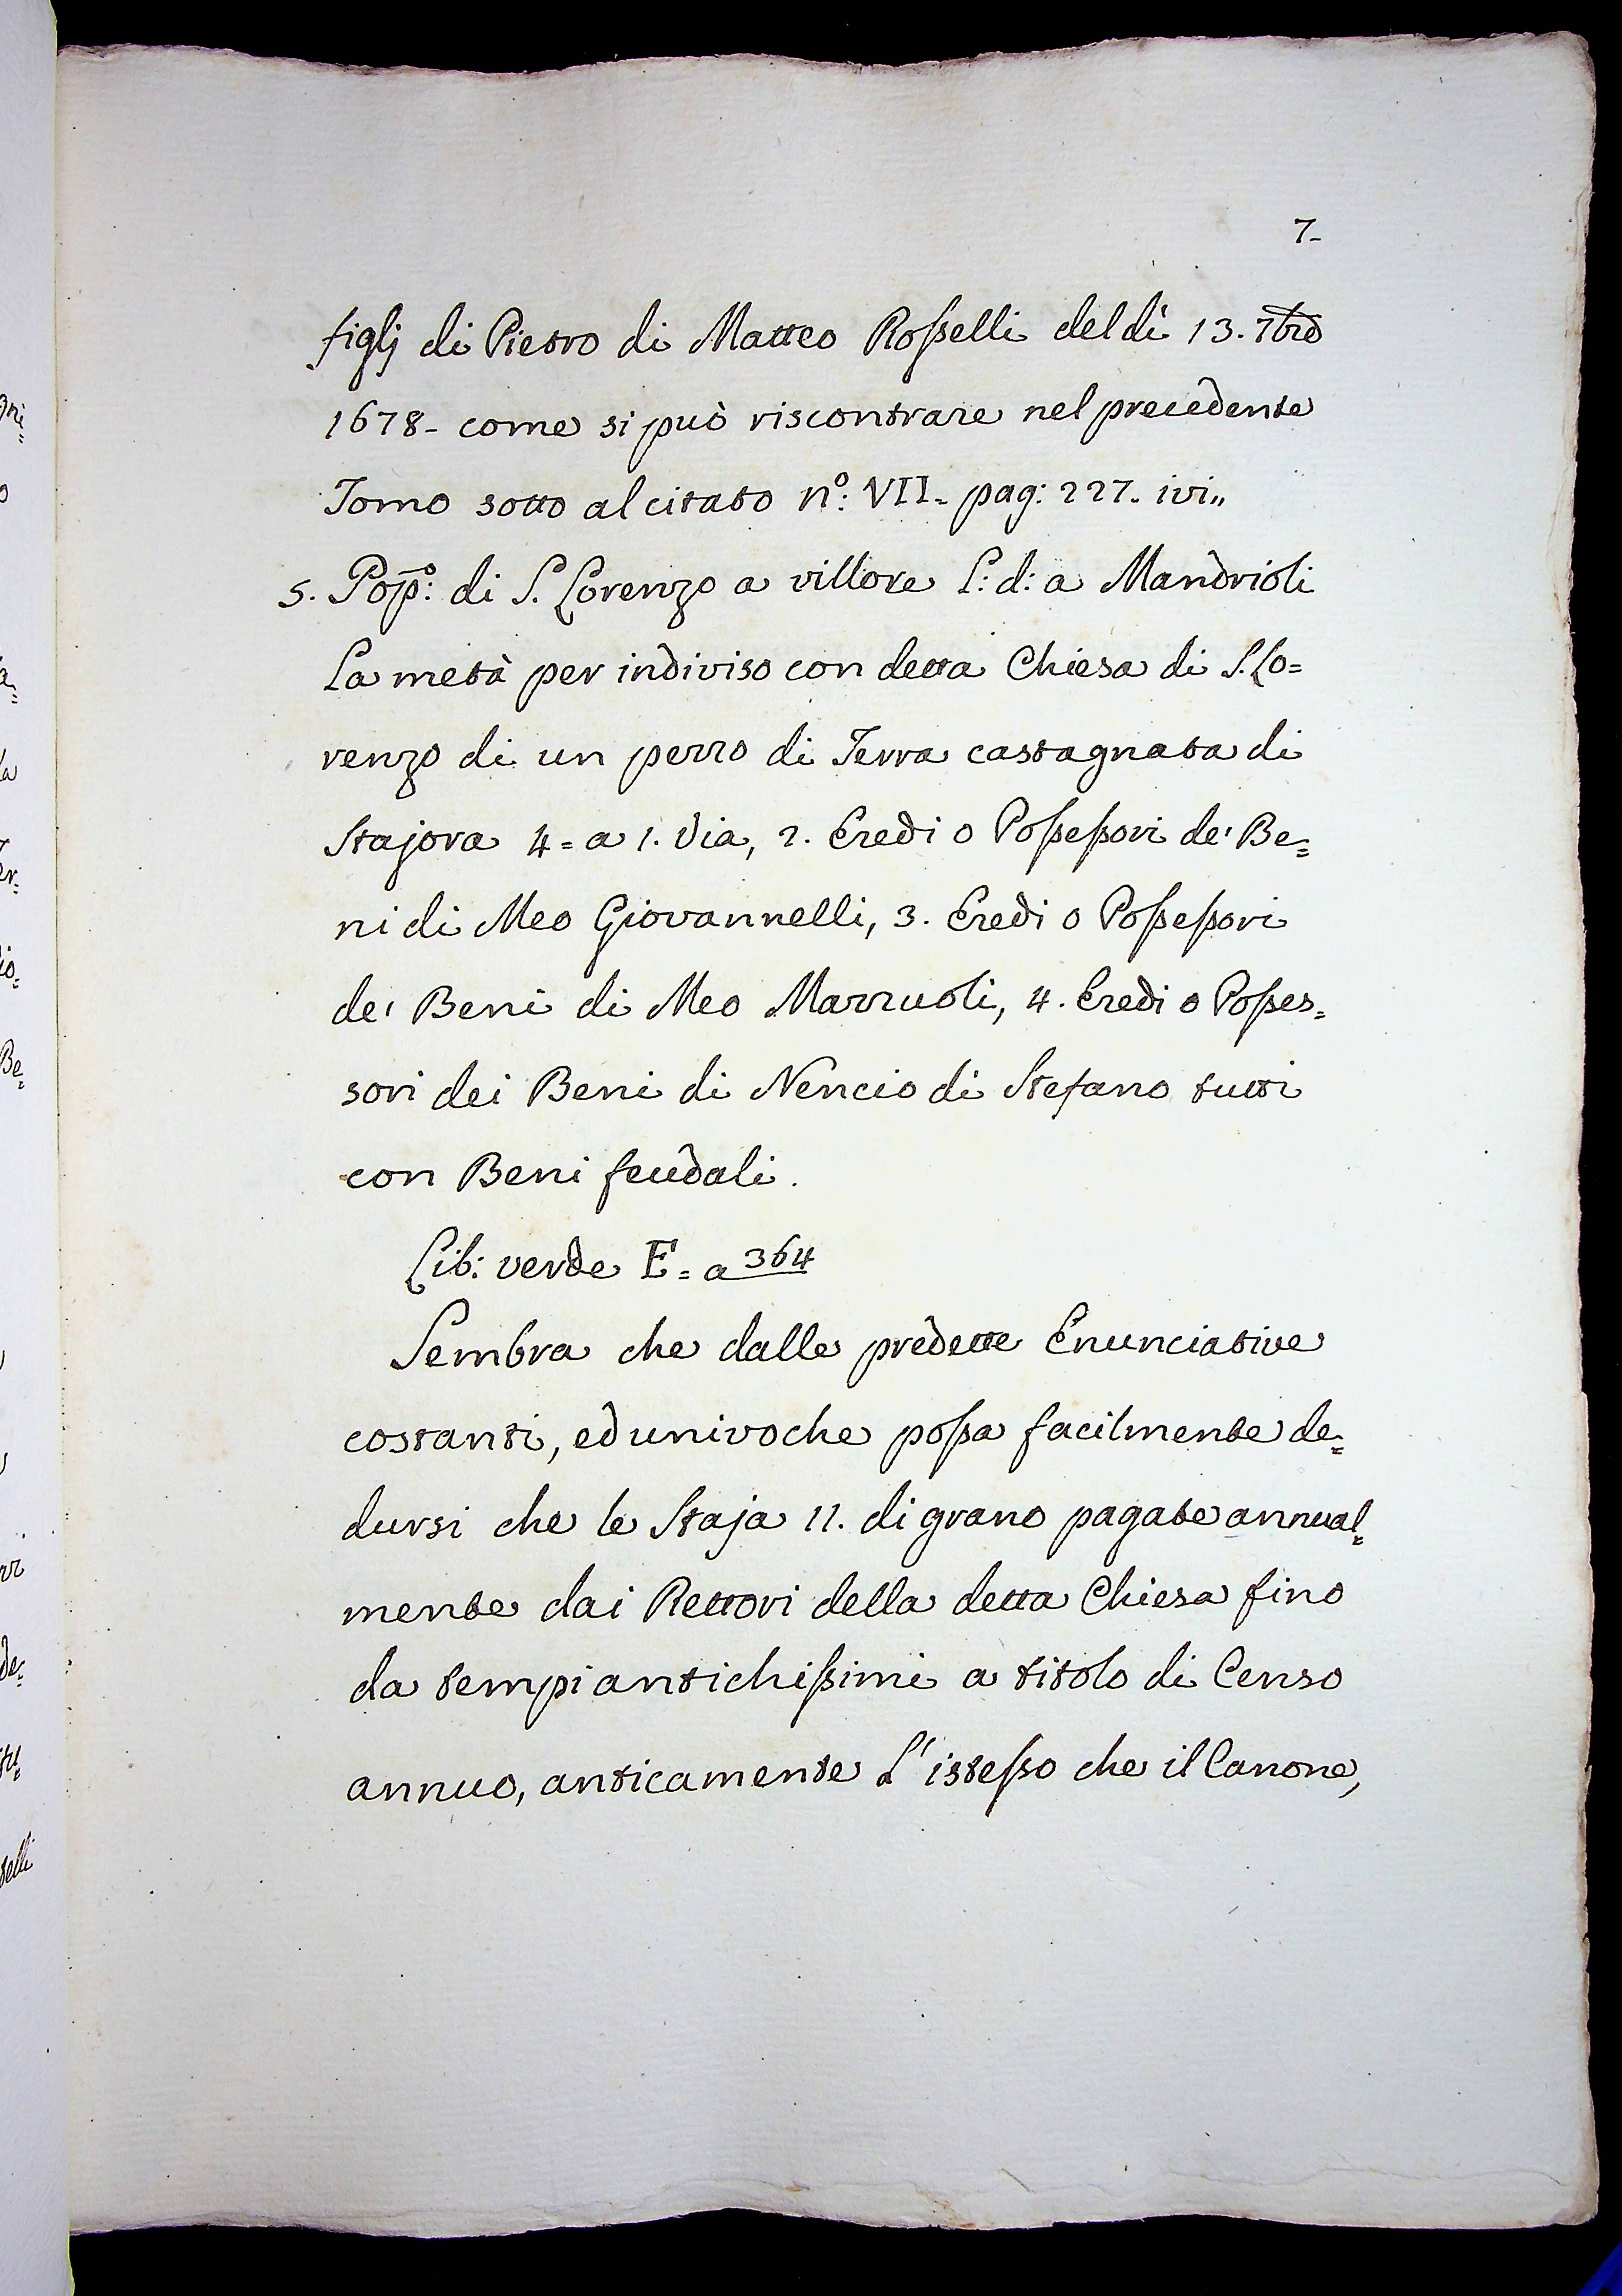 7-
figlj di Pietro di Matteo Rosselli del dì 13. 7bre
1678- come si può riscontrare nel precedente
Tomo sotto al citato n.º: VII- pag: 227. ivi„
5. Pop.º: di S. Lorenzo a villore l: d: a Mandrioli
La metà per indiviso con detta Chiesa di S. Lo=
renzo di un pezzo di Terra castagnata di
Stajora 4= a 1. Via, 2. Eredi o Possessori de' Be=
ni di Meo Giovannelli, 3. Eredi o Possessori
de' Beni di Meo Mazzuoli, 4. Eredi o Posses=
sori dei Beni di Nencio di Stefano tutti
con Beni feudali.
Lib: verde E= a 364
Sembra che dalle predette Enunciative
costanti, ed univoche possa facilmente de=
dursi che le Staja 11. di grano pagate annual=
mente dai Rettori della detta Chiesa fino
da tempi antichissimi a titolo di Censo
annuo, anticamente L'istesso che il Canone,